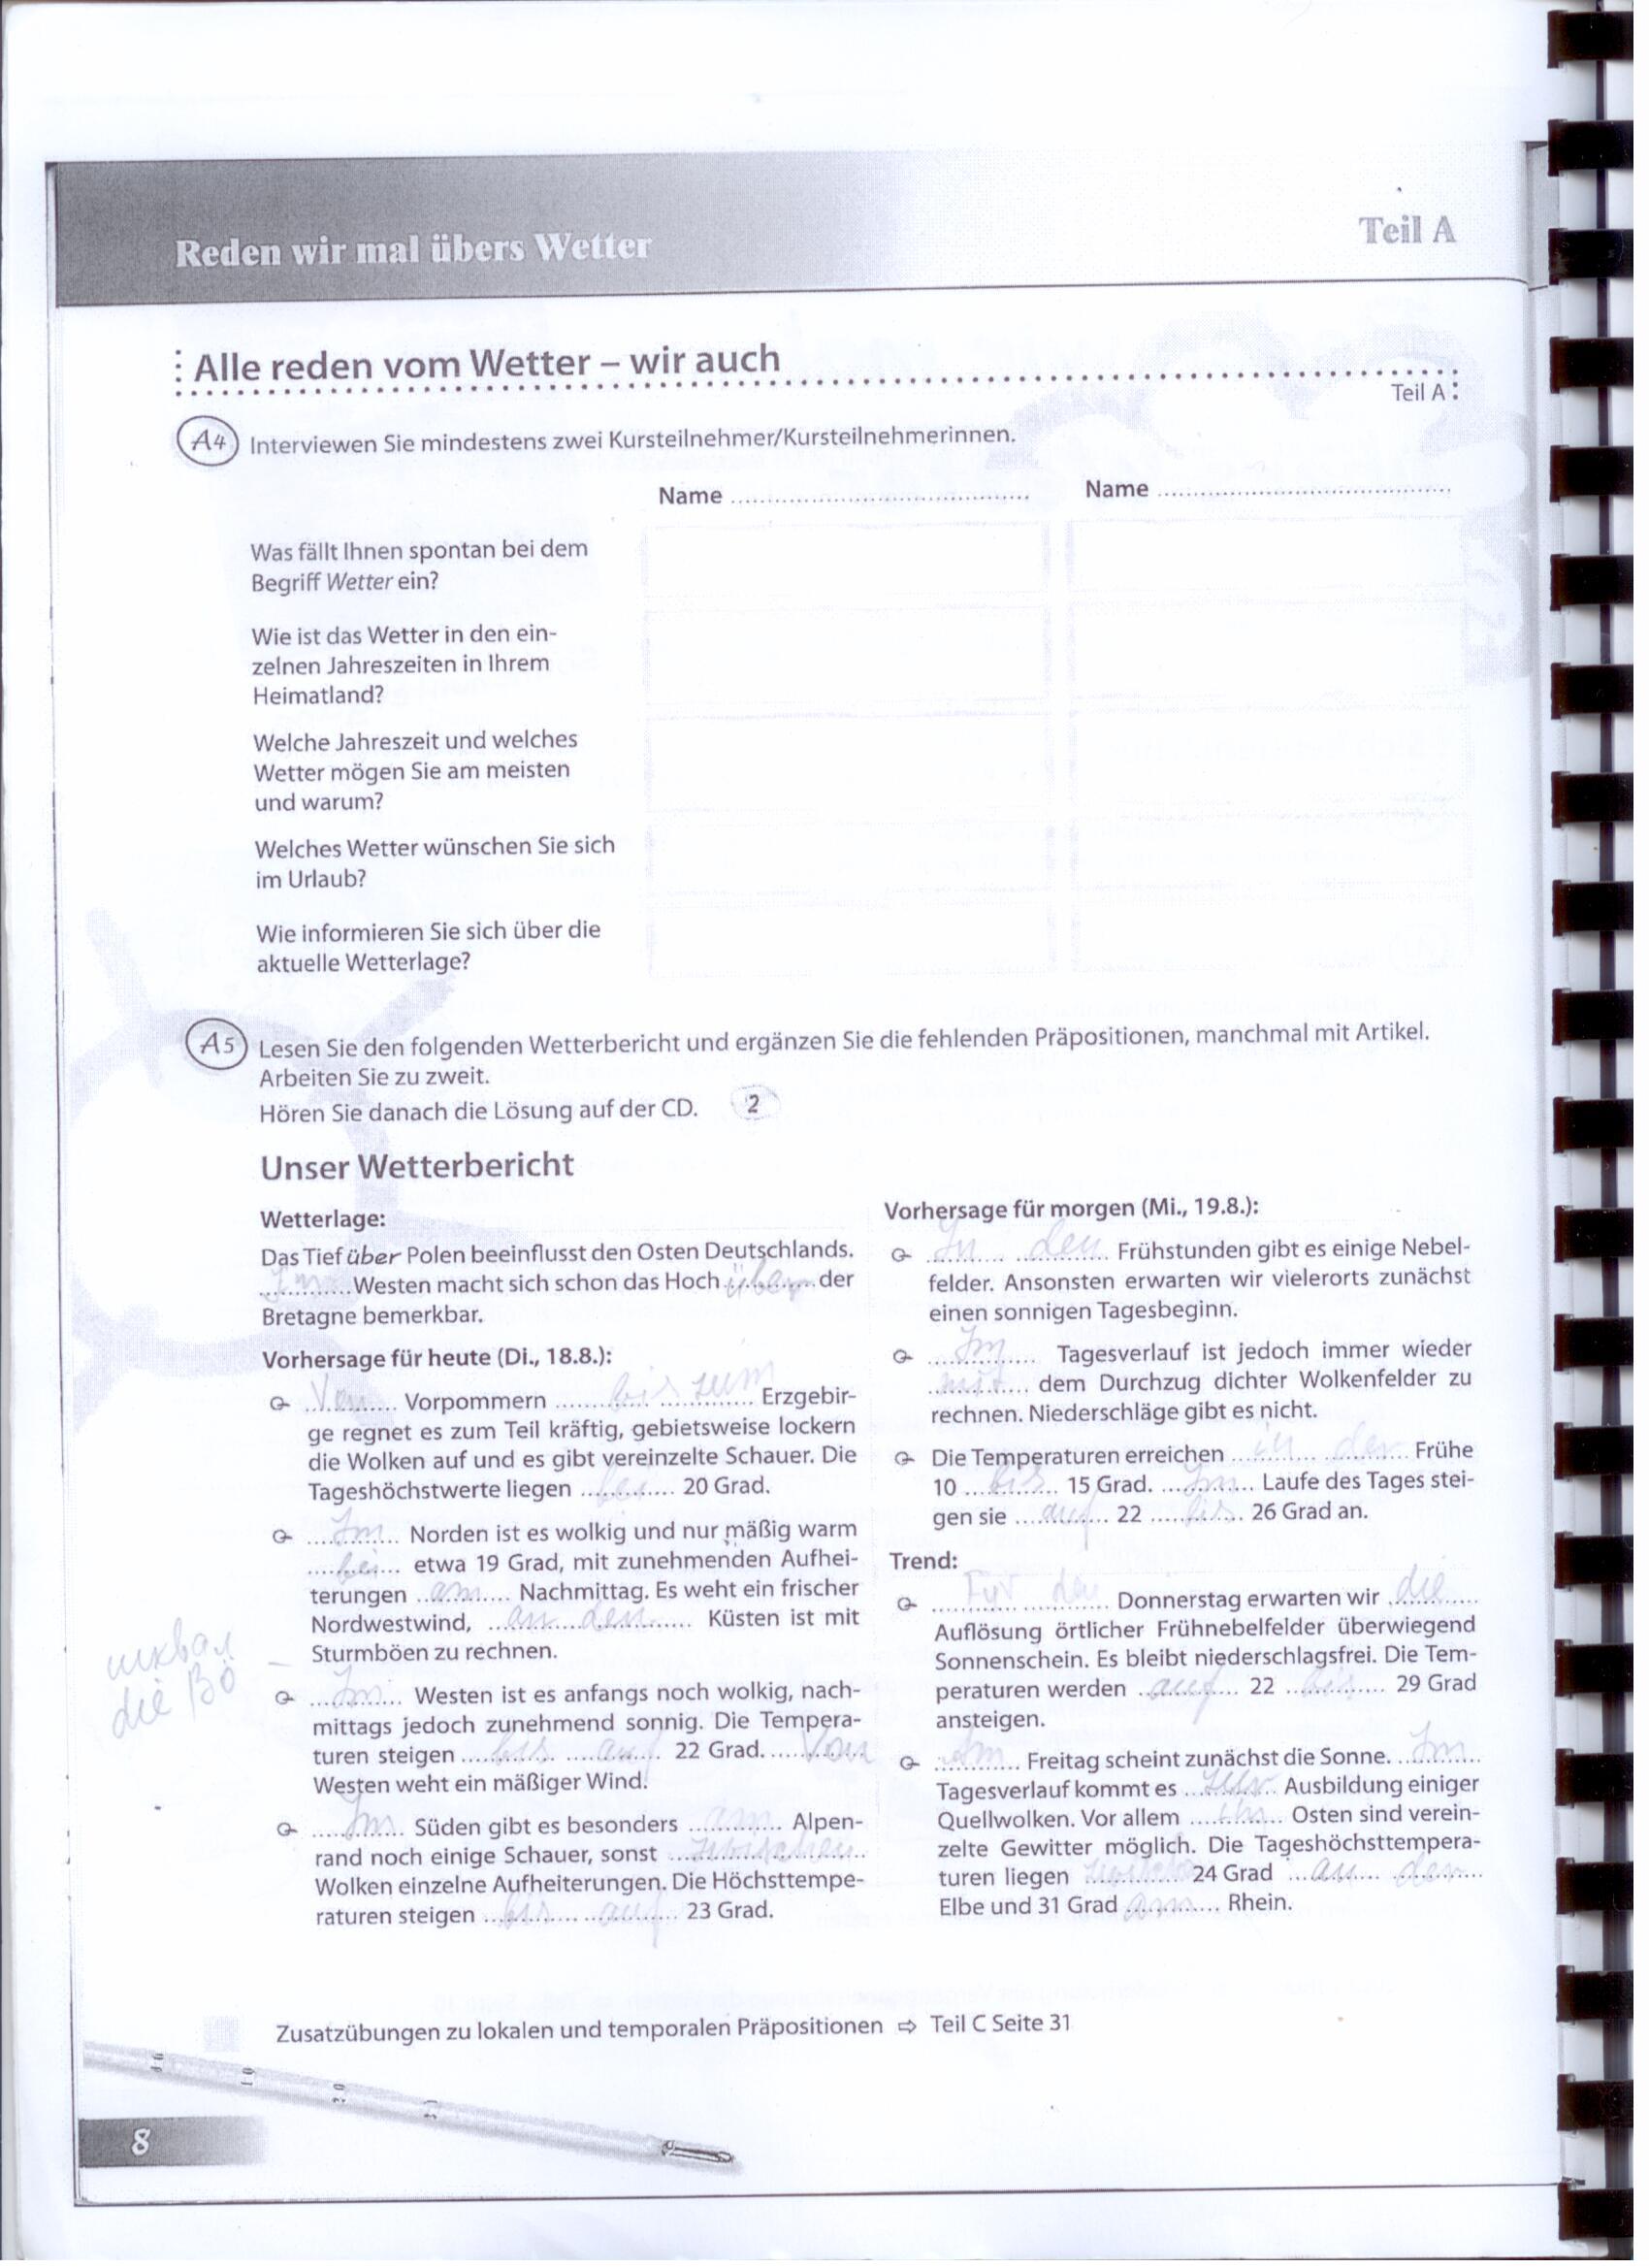 Reden wir mal übers Wetter
Teil A
Alle reden vom Wetter – wir auch
Teil A
A4 Interviewen Sie mindestens zwei Kursteilnehmer/Kursteilnehmerinnen.
Name ........................................ Name ........................................
Was fällt Ihnen spontan bei dem
Begriff Wetter ein?
Wie ist das Wetter in den ein-
zelnen Jahreszeiten in Ihrem
Heimatland?
Welche Jahreszeit und welches
Wetter mögen Sie am meisten
und warum?
Welches Wetter wünschen Sie sich
im Urlaub?
Wie informieren Sie sich über die
aktuelle Wetterlage?
A5 Lesen Sie den folgenden Wetterbericht und ergänzen Sie die fehlenden Präpositionen, manchmal mit Artikel.
Arbeiten Sie zu zweit.
Hören Sie danach die Lösung auf der CD. 2
Unser Wetterbericht
Wetterlage:
Das Tief über Polen beeinflusst den Osten Deutschlands.
Im Westen macht sich schon das Hoch über der
Bretagne bemerkbar.
Vorhersage für heute (Di., 18.8.):
Von Vorpommern bis zum Erzgebir-
ge regnet es zum Teil kräftig, gebietsweise lockern
die Wolken auf und es gibt vereinzelte Schauer. Die
Tageshöchstwerte liegen bei 20 Grad.
Im Norden ist es wolkig und nur mäßig warm
bei etwa 19 Grad, mit zunehmenden Aufhei-
terungen am Nachmittag. Es weht ein frischer
Nordwestwind, an den Küsten ist mit
Sturmböen zu rechnen.
шквал
die Bö
Im Westen ist es anfangs noch wolkig, nach-
mittags jedoch zunehmend sonnig. Die Tempera-
turen steigen bis auf 22 Grad. Von
Westen weht ein mäßiger Wind.
Im Süden gibt es besonders am Alpen-
rand noch einige Schauer, sonst zwischen
Wolken einzelne Aufheiterungen. Die Höchsttempe-
raturen steigen bis auf 23 Grad.
Vorhersage für morgen (Mi., 19.8.):
In den Frühstunden gibt es einige Nebel-
felder. Ansonsten erwarten wir vielerorts zunächst
einen sonnigen Tagesbeginn.
Im Tagesverlauf ist jedoch immer wieder
mit dem Durchzug dichter Wolkenfelder zu
rechnen. Niederschläge gibt es nicht.
Die Temperaturen erreichen in der Frühe
10 bis 15 Grad. Im Laufe des Tages stei-
gen sie auf 22 bis 26 Grad an.
Trend:
Für den Donnerstag erwarten wir die
Auflösung örtlicher Frühnebelfelder überwiegend
Sonnenschein. Es bleibt niederschlagsfrei. Die Tem-
peraturen werden auf 22 bis 29 Grad
ansteigen.
Am Freitag scheint zunächst die Sonne. Im
Tagesverlauf kommt es zur Ausbildung einiger
Quellwolken. Vor allem im Osten sind verein-
zelte Gewitter möglich. Die Tageshöchsttempera-
turen liegen 24 Grad an der
Elbe und 31 Grad am Rhein.
Zusatzübungen zu lokalen und temporalen Präpositionen ⇨ Teil C Seite 31
8